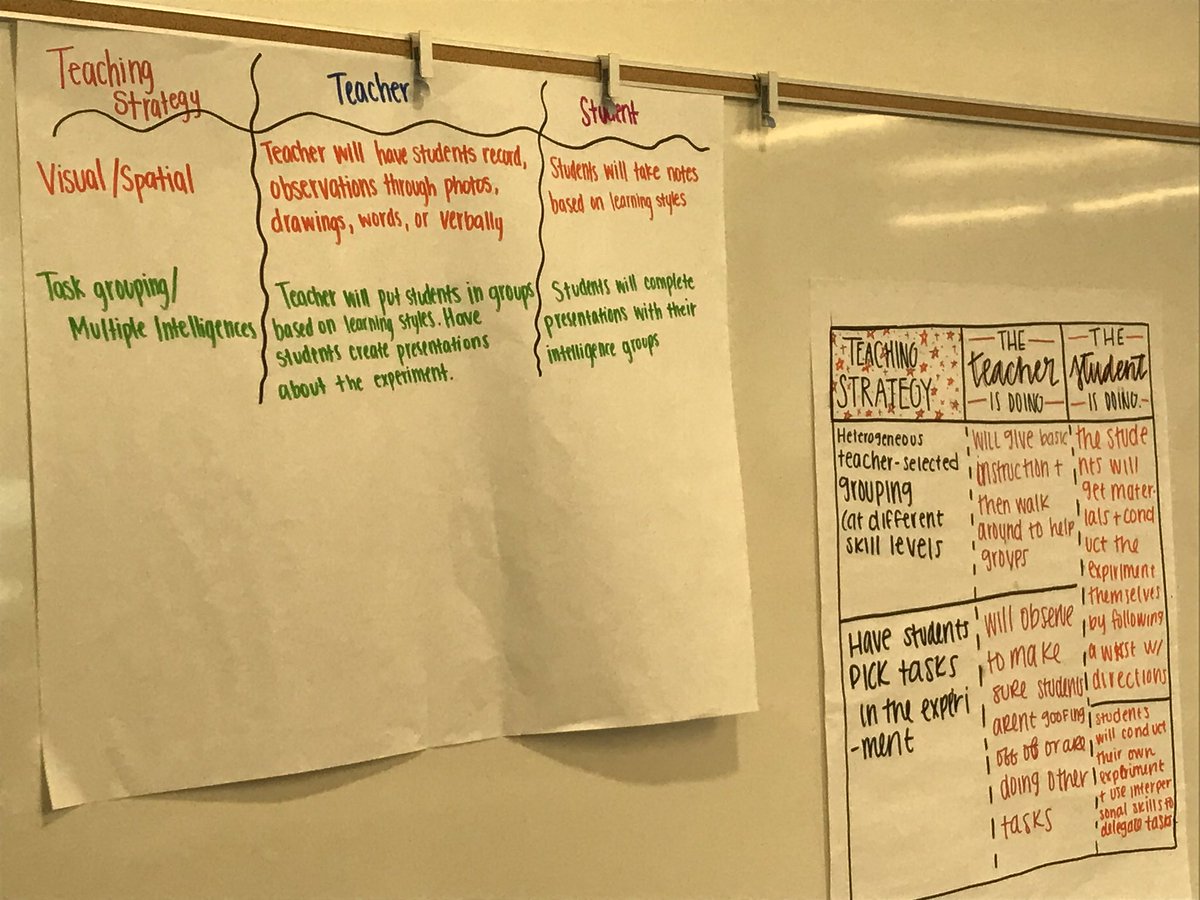 Teaching
Strategy
Teacher
Student
Visual/Spatial
Teacher will have students record,
observations through photos,
drawings, words, or verbally
Students will take notes
based on learning styles
Task grouping/
Multiple Intelligences
Teacher will put students in groups
based on learning styles. Have
students create presentations
about the experiment.
Students will complete
presentations with their
intelligence groups
TEACHING
STRATEGY
THE
teacher
IS DOING
THE
student
IS DOING.
Heterogeneous
teacher-selected
grouping
(at different
skill levels
will give basic
instruction +
then walk
around to help
groups
the stude
nts will
get mater-
ials + cond
uct the
expiriment
themselves
by following
a w/
directions
Have students
pick tasks
in the experi
-ment
will observe
to make
sure students
arent goofing
off or are
doing other
tasks
students
will conduct
their own
expiriment
+ use interper
sonal skills to
delegate tasks